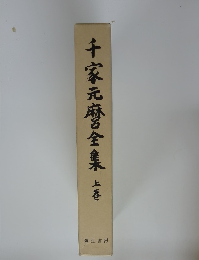 千家元麿全集
上巻